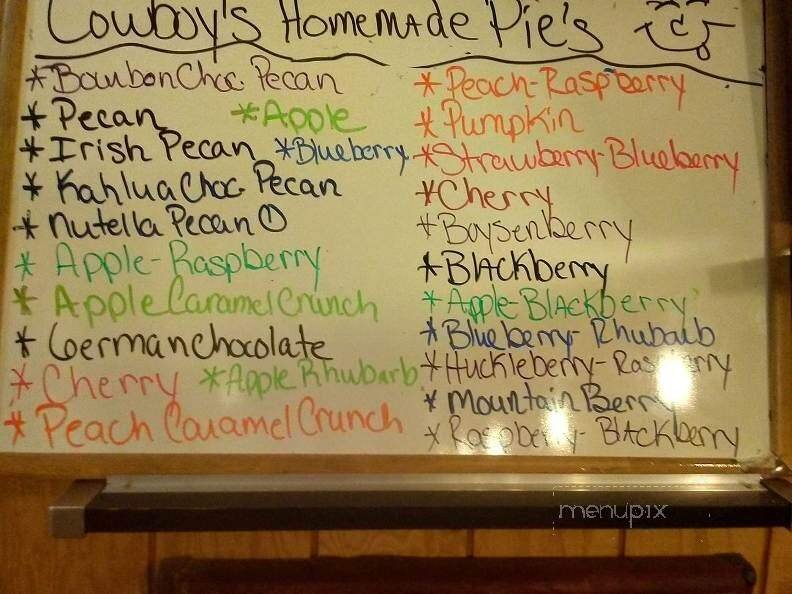 Cowboy's Homemade Pie's
* Bourbon Choc Pecan
* Pecan * Apple
* Irish Pecan * Blueberry
* Kahlua Choc Pecan
* Nutella Pecan
* Apple-Raspberry
* Apple Caramel Crunch
* German Chocolate
* Cherry * Apple Rhubarb
* Peach Caramel Crunch
* Peach-Raspberry
* Pumpkin
* Strawberry-Blueberry
* Cherry
* Boysenberry
* Blackberry
* Apple-Blackberry
* Blueberry-Rhubarb
* Huckleberry-Raspberry
* Mountain Berry
* Raspberry-Blackberry
menupix